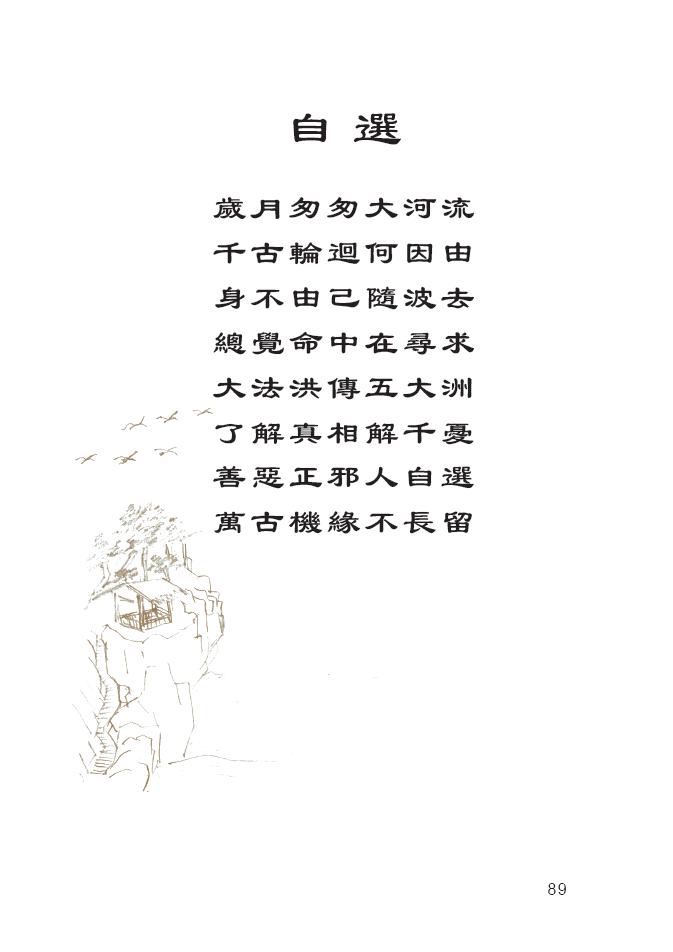 自選
歲月匆匆大河流
千古輪迴何因由
身不由己隨波去
總覺命中在尋求
大法洪傳五大洲
了解真相解千憂
善惡正邪人自選
萬古機緣不長留
89